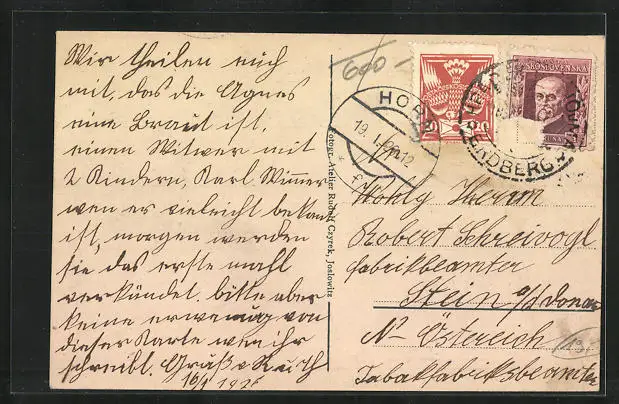 Wir theilen euch
mit, das die Agnes
eine Braut ist,
einen Witwer mit
2 Kindern, Karl Wimmer
wen er vieleicht bekant
ist, morgen werden
sie das erste mahl
verkündet, bitte aber
keine erwenung von
dieser Karte wen ihr
schreibt. Grüße
16/1 1926
Fotogr. Atelier Rudolf Czyrek, Joslowitz
600
ČESKOSLOVENSKÁ
HOR
19. I. 26. 12
ERDBERG
Wohlg Herrn
Robert Schreivogl
fabrikbeamter
Stein a/d Donau
N- Östereich
Tabakfabriksbeamter